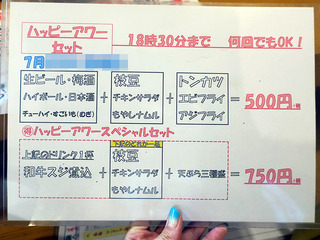 ハッピーアワー
セット
18時30分まで 何回でもOK!
7月
生ビール・梅酒
ハイボール・日本酒
チューハイ・すごいも(むぎ)
+
枝豆
チキンサラダ
もやしナムル
+
トンカツ
エビフライ
アジフライ
= 500円
ハッピーアワースペシャルセット
上記のドリンク1杯
和牛スジ煮込
+
枝豆
チキンサラダ
もやしナムル
+ 天ぷら三種盛
= 750円